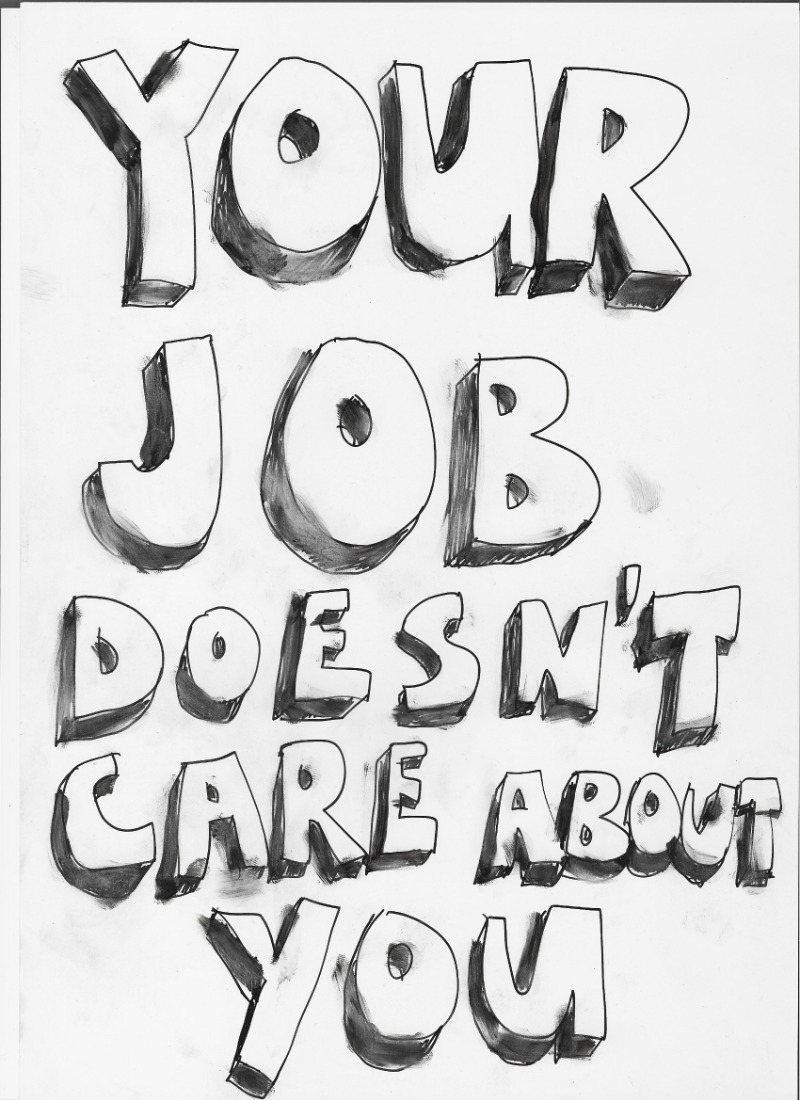 YOUR
JOB
DOESN'T
CARE ABOUT
YOU